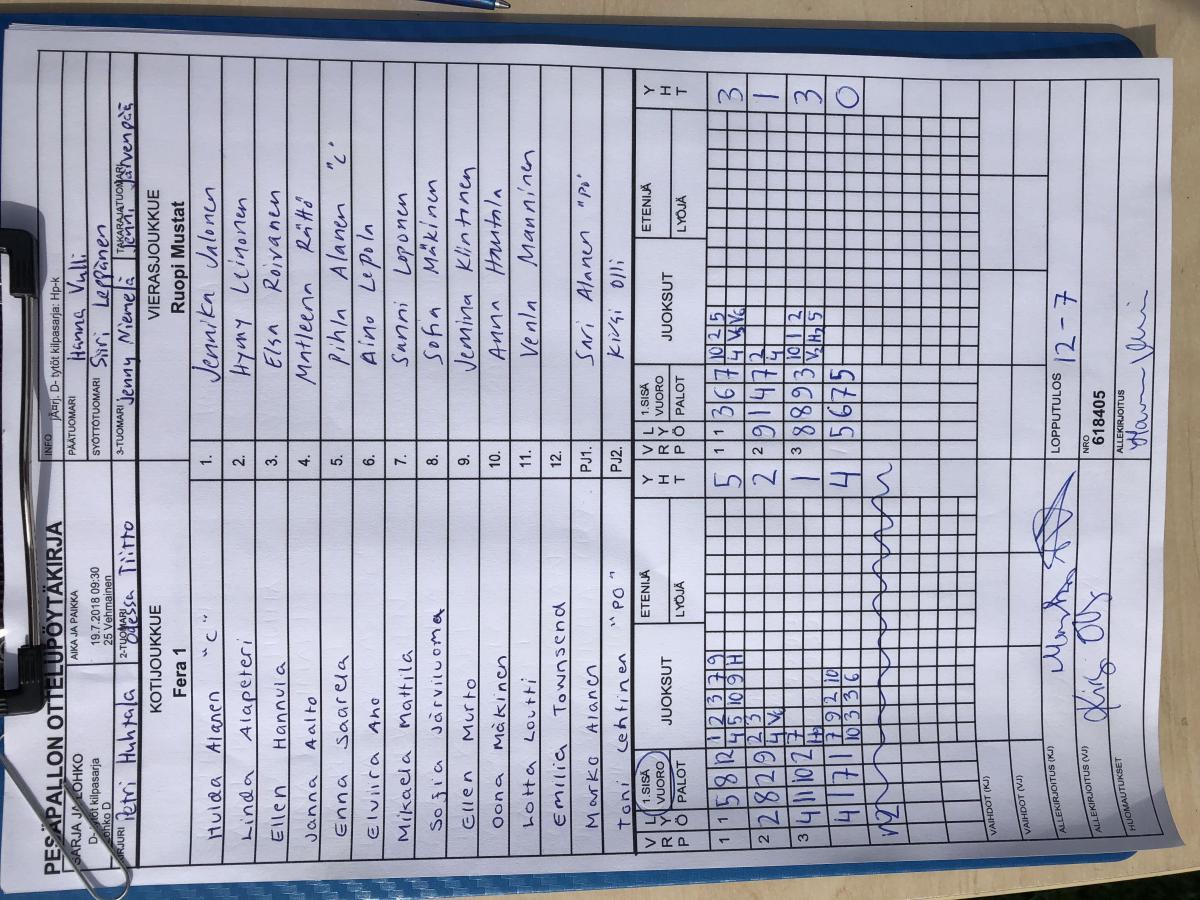 PESÄPALLON OTTELUPÖYTÄKIRJA
SARJA JA LOHKO
D- tytöt kilpasarja
Lohko D
AIKA JA PAIKKA
19.7.2018 09:30
25 Vehmainen
INFO jÃ¤rj. D- tytöt kilpasarja: Hp-k
PÄÄTUOMARI Hanna Valli
SYÖTTÖTUOMARI Siiri Leppänen
KIRJURI Petri Huhtala
2-TUOMARI Odessa Tiitto
3-TUOMARI Jenny Niemelä
TAKARAJATUOMARI Jenni Järvenpää
KOTIJOUKKUE
Fera 1
VIERASJOUKKUE
Ruopi Mustat
Hulda Alanen "C" 1. Jennika Jalonen
Linda Alapeteri 2. Hymy Leinonen
Ellen Hannula 3. Elsa Roivanen
Janna Aalto 4. Matleena Rättö
Enna Saarela 5. Pihla Alanen "C"
Elviira Ano 6. Aino Lepola
Mikaela Mattila 7. Sanni Loponen
Sofia Järviluoma 8. Sofia Mäkinen
Ellen Murto 9. Jemina Klintinen
Oona Mäkinen 10. Anna Hautala
Lotta Loutti 11. Venla Manninen
Emilia Townsend 12.
Marko Alanen PJ1. Sari Alanen "PO"
Toni Lehtinen "PO" PJ2. Kirsi Olli
VRP LYÖ 1.SISÄ VUORO PALOT JUOKSUT ETENIJÄ LYÖJÄ YHT
VRP LYÖ 1.SISÄ VUORO PALOT JUOKSUT ETENIJÄ LYÖJÄ YHT
1 1 5 8 12 1 2 3 7 9 5 1 1 3 6 7 10 2 5 3
4 5 10 9 H 4 V5 V6
2 2 8 2 9 2 3 2 2 9 1 4 7 2 1
4 V6 4
3 4 11 10 2 7 1 3 8 8 9 3 10 1 2 3
V2 H2 5
4 1 7 1 7 9 2 10 4 4 5 6 7 5 0
10 3 3 6
VAIHDOT (KJ)
VAIHDOT (VJ)
ALLEKIRJOITUS (KJ)
LOPPUTULOS 12-7
ALLEKIRJOITUS (VJ) Kirsi Olli
NRO
618405
HUOMAUTUKSET
ALLEKIRJOITUS